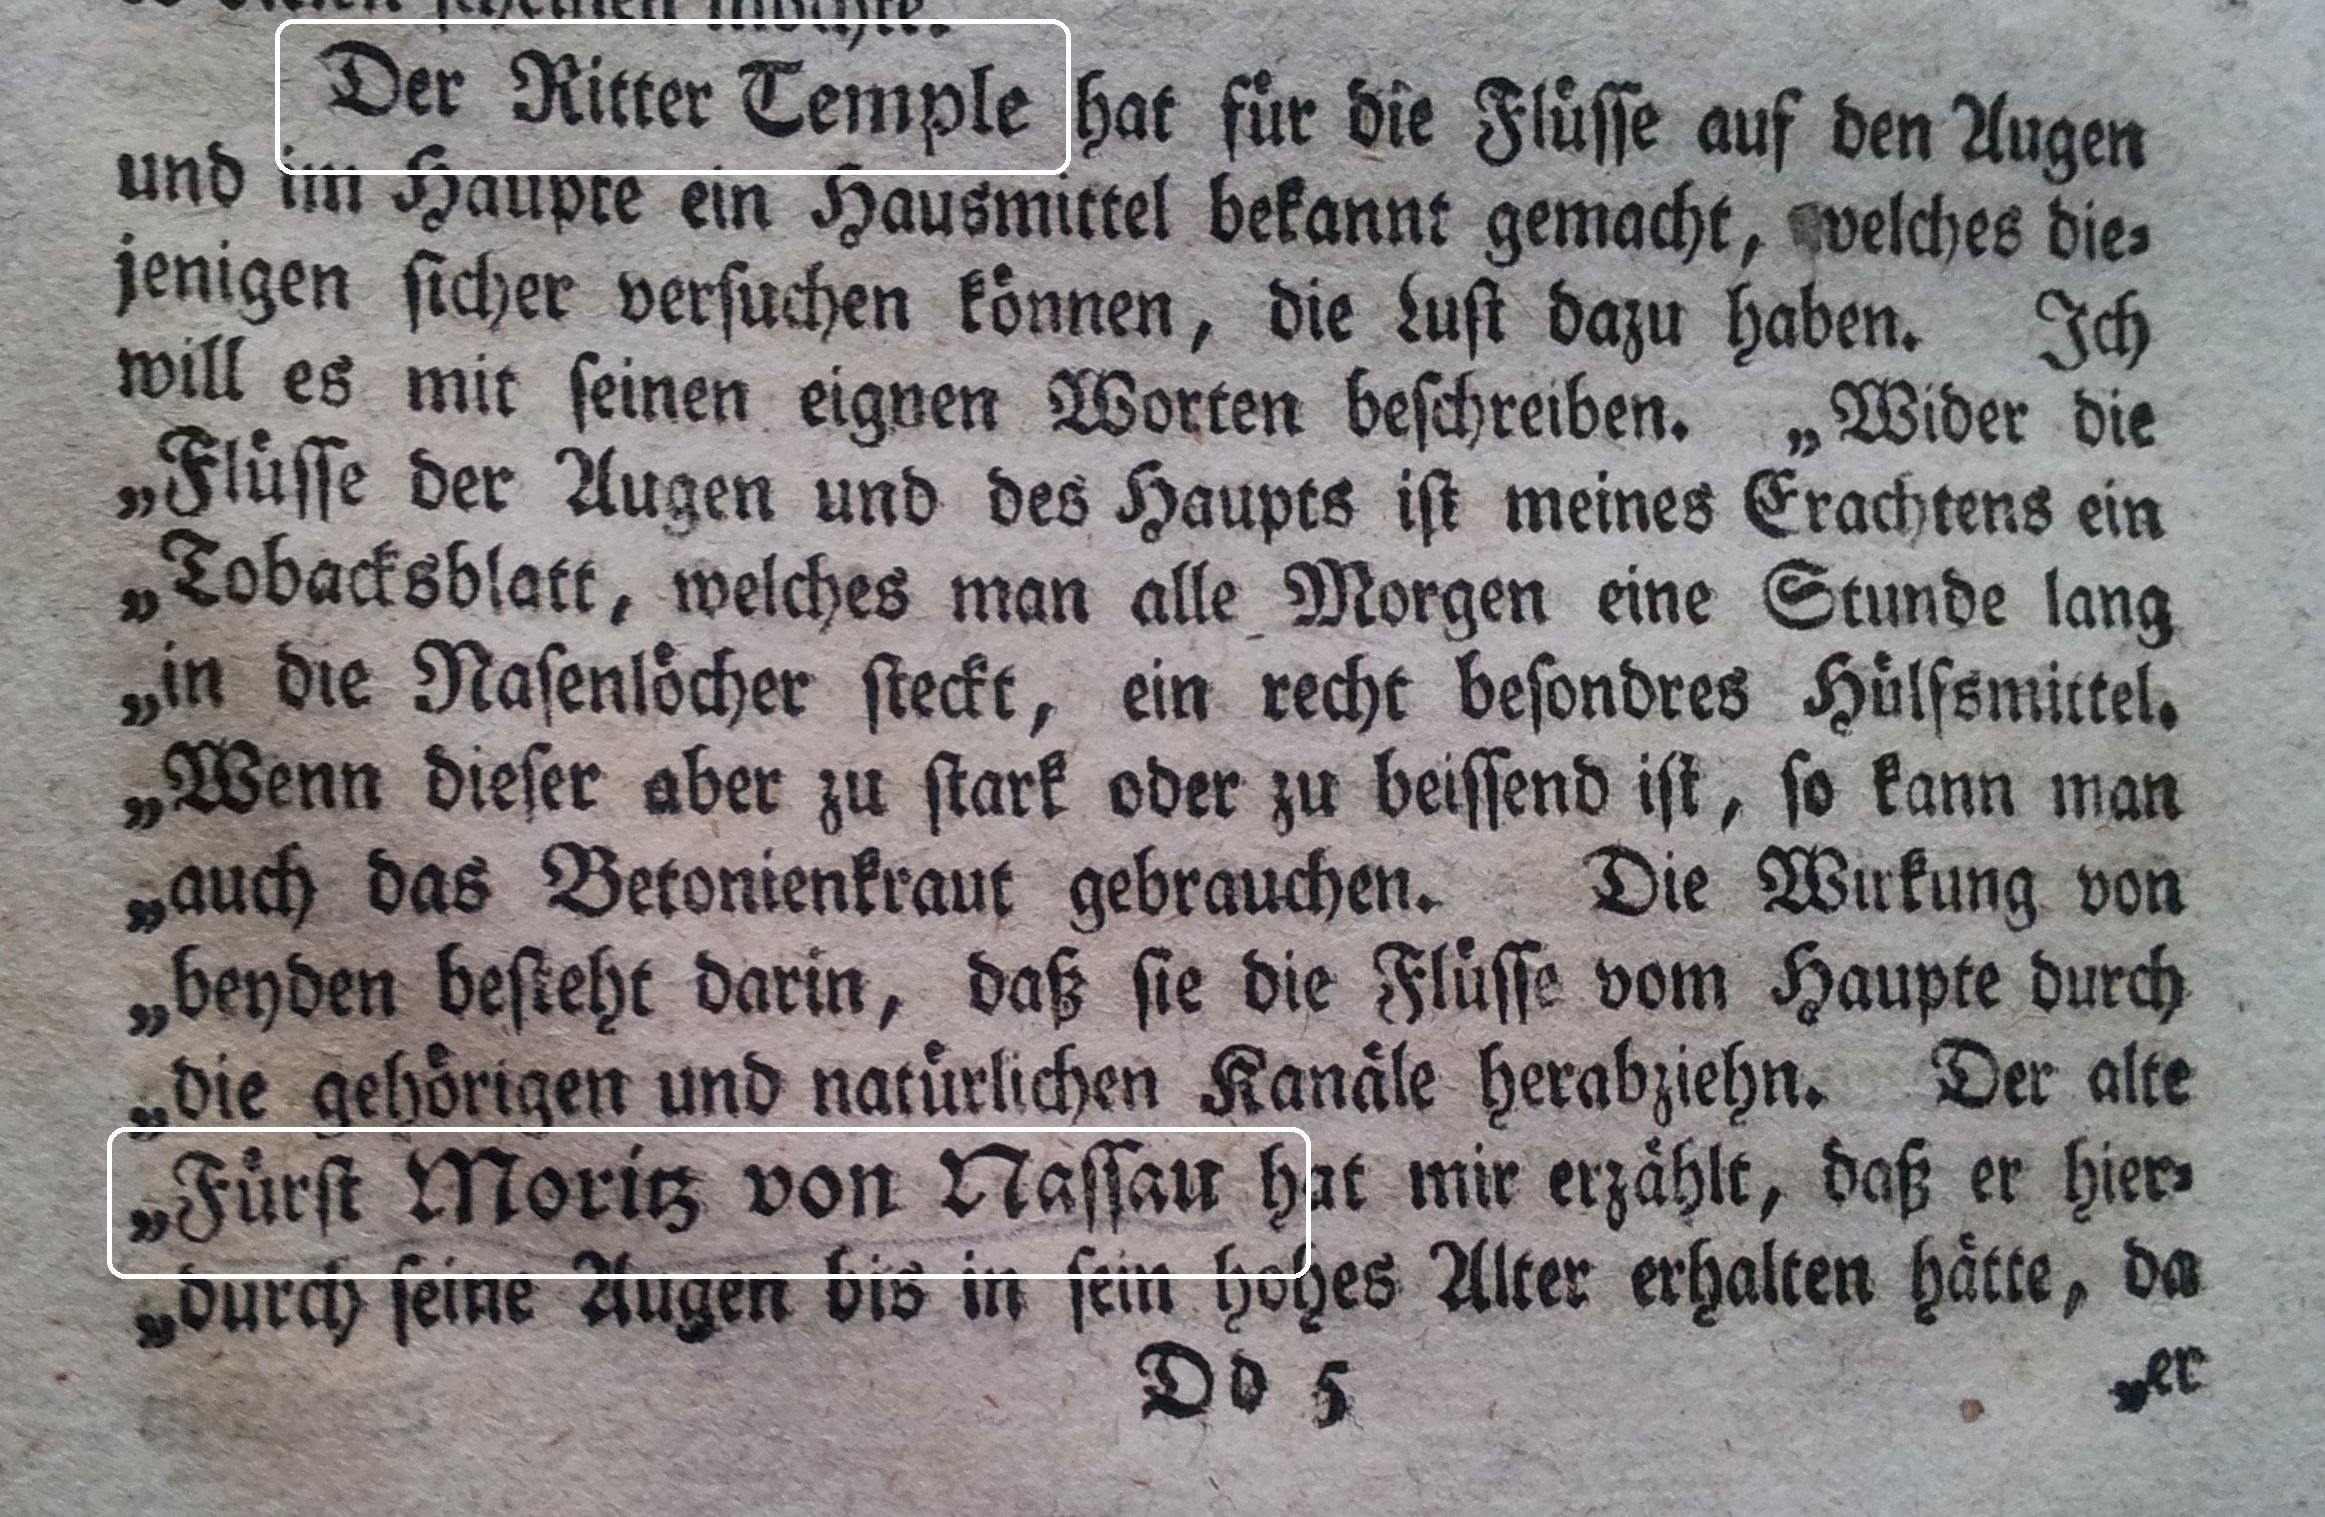 Der Ritter Temple hat für die Flüsse auf den Augen
und im Haupte ein Hausmittel bekannt gemacht, welches die⸗
jenigen sicher versuchen können, die Lust dazu haben. Ich
will es mit seinen eignen Worten beschreiben. „Wider die
„Flüsse der Augen und des Haupts ist meines Erachtens ein
„Tobacksblatt, welches man alle Morgen eine Stunde lang
„in die Nasenlöcher steckt, ein recht besondres Hülfsmittel.
„Wenn dieser aber zu stark oder zu beissend ist, so kann man
„auch das Betonienkraut gebrauchen. Die Wirkung von
„beyden besteht darin, daß sie die Flüsse vom Haupte durch
„die gehörigen und natürlichen Kanäle herabziehn. Der alte
„Fürst Moritz von Nassau hat mir erzählt, daß er hier⸗
„durch seine Augen bis in sein hohes Alter erhalten hätte, da
Dd 5 „er